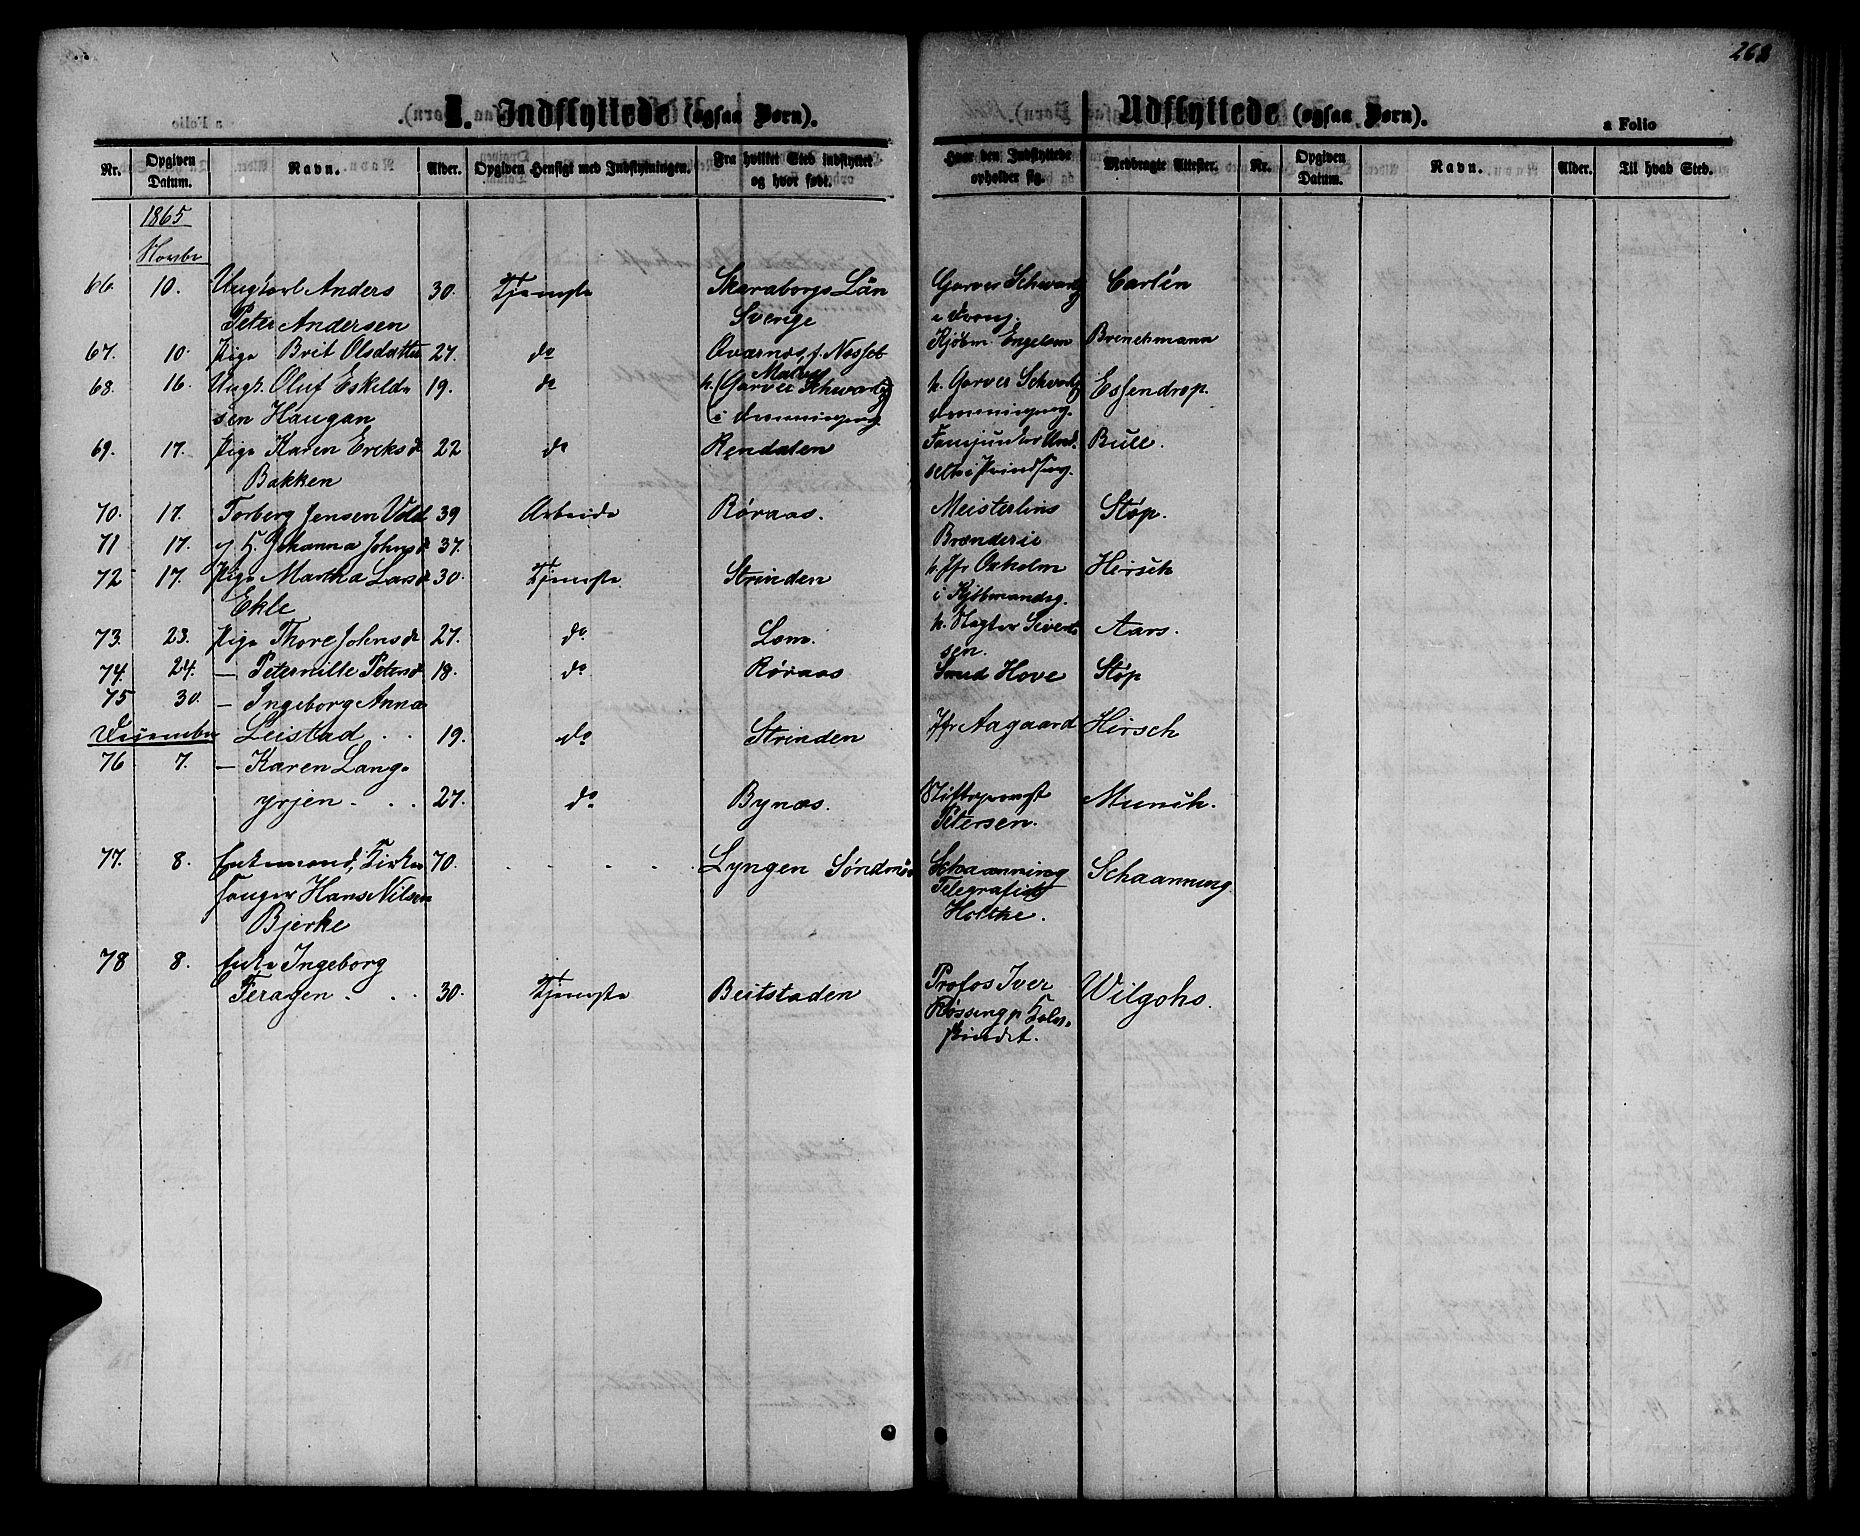 268
I. Indflyttede (ogsaa Børn).
Udflyttede (ogsaa Børn).
a Folio
Nr. Opgiven Datum. Navn. Alder. Opgiven Hensigt med Indflytningen. Fra hvilket Sted indflyttet og hvor født. Hvor den Indflyttede opholder sig. Medbragte Attester. Nr. Opgiven Datum. Navn. Alder. Til hvad Sted.
1865
Novbr
66. 10. Ungkarl Anders 30. Tjeneste Skaraborgs Län Garver Schwartz Carlén
Peter Andersen Sverige i Dronng.
67. 10. Pige Brit Olsdatter 27. do Kjøbm Engelsen Brinchmann
68. 16. Ungk. Oluf Eskild- 19. do h. (Garver Schwartz) h. Garver Schwartz Essendrop.
sen Haugan i Dronningeng. Dronningeng.
69. 17. Pige Karen Ericsd 22 do Rendalen Bull.
Bakken
70. 17. Torberg Jensen Vold 39 Arbeide Røraas. Meisterlins Støp.
71 17. Johanna Johnsd 37. Brænderie
72 17. Pige Martha Larsd 30. Tjeneste Strinden h. Jfr Oxholm Hirsch
Ekle i Kjøbmandsg.
73. 23. Pige Thore Johnsd 27. do Lom. h. Slagter Sivert- Aars.
sen.
74. 24. — Peternille Petersd 18. do Røraas Smed Hove Støp
75 30. — Ingeborg Anna
December Leistad . . 19. do Strinden Jfr Aagaard Hirsch
76 7. — Karen Lang-
yrjen . . . 27. do Bynæs. Stiftsprovst Munch.
Petersen.
77. 8. Enkemand, Kirke- 70. . . . . Lyngen Søndmør Schaanning Schaanning.
sanger Hans Nilsen Telegrafist
Bjerke Holtke.
78 8. Enke Ingeborg
Feragen . . . 30. Tjeneste Beitstaden Profos Iver Wilgohs.
Røssing p Kalv-
skindet.